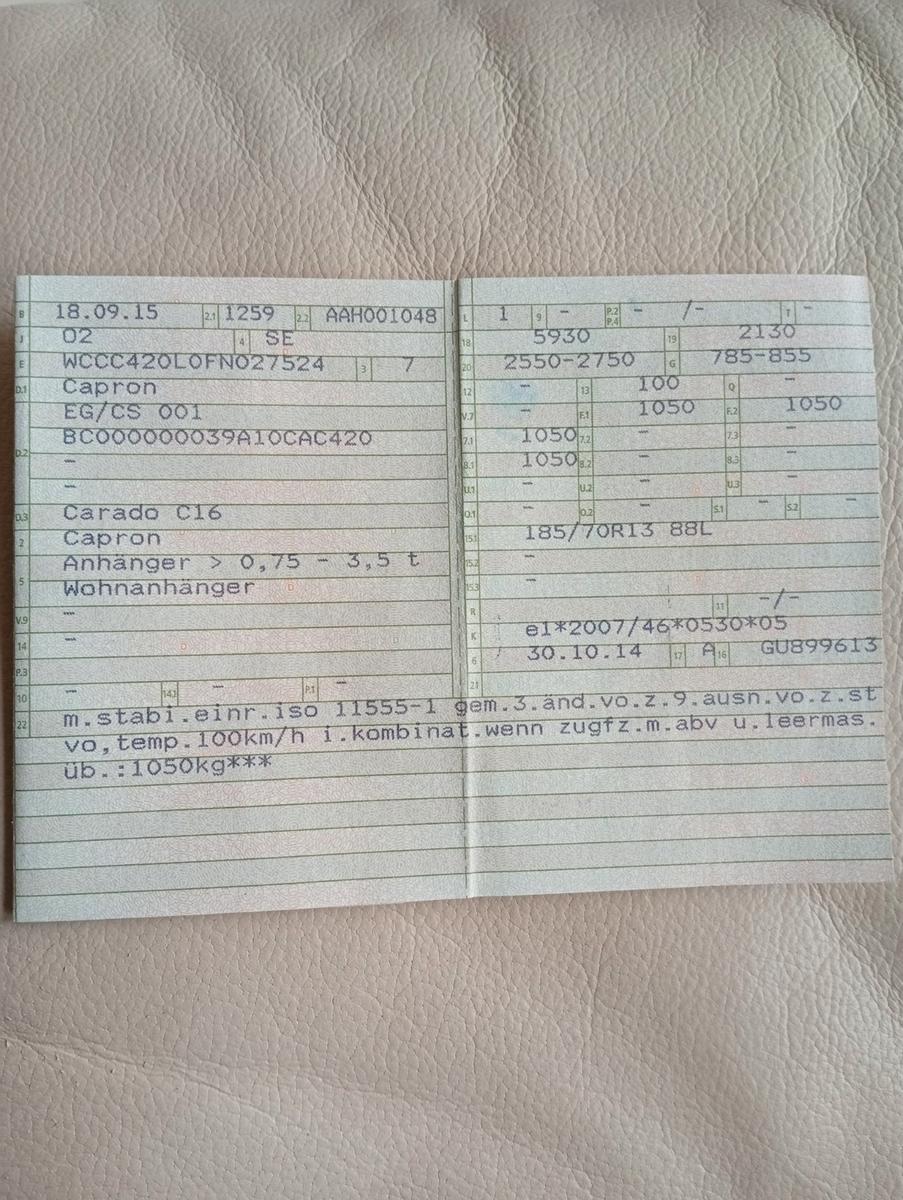 B 18.09.15 2.1 1259 2.2 AAH001048
J 02 4 SE
E WCCC420L0FN027524 3 7
D.1 Capron
EG/CS 001
D.2 BC000000039A10CAC420
–
–
D.3 Carado C16
2 Capron
5 Anhänger > 0,75 – 3,5 t
Wohnanhänger
V.9 –
14 –
P.3
10 – 14.1 – P.1 –
L 1 9 – P.2 P.4 – /– T –
18 5930 19 2130
20 2550-2750 G 785-855
12 – 13 100 Q –
V.7 – F.1 1050 F.2 1050
7.1 1050 7.2 – 7.3 –
8.1 1050 8.2 – 8.3 –
U.1 – U.2 – U.3 –
O.1 – O.2 – S.1 – S.2 –
15.1 185/70R13 88L
15.2 –
15.3 –
R 11 –/–
K e1*2007/46*0530*05
6 30.10.14 17 A 16 GU899613
21
22 m.stabi.einr.iso 11555-1 gem.3.änd.vo.z.9.ausn.vo.z.st
vo,temp.100km/h i.kombinat.wenn zugfz.m.abv u.leermas.
üb.:1050kg***